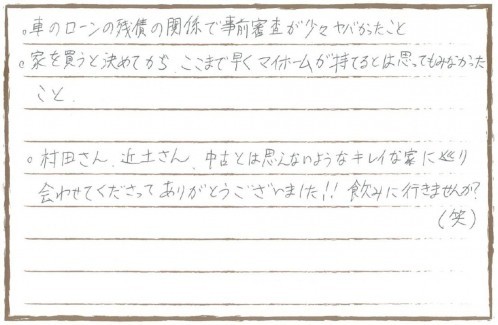 。車のローンの残債の関係で事前審査が少々ヤバかったこと
。家を買うと決めてから、ここまで早くマイホームが持てるとは思ってもみなかった
こと.
。村田さん、近土さん、中古とは思えないようなキレイな家に巡り
会わせてくださってありがとうございました!! 飲みに行きませんか?
(笑)